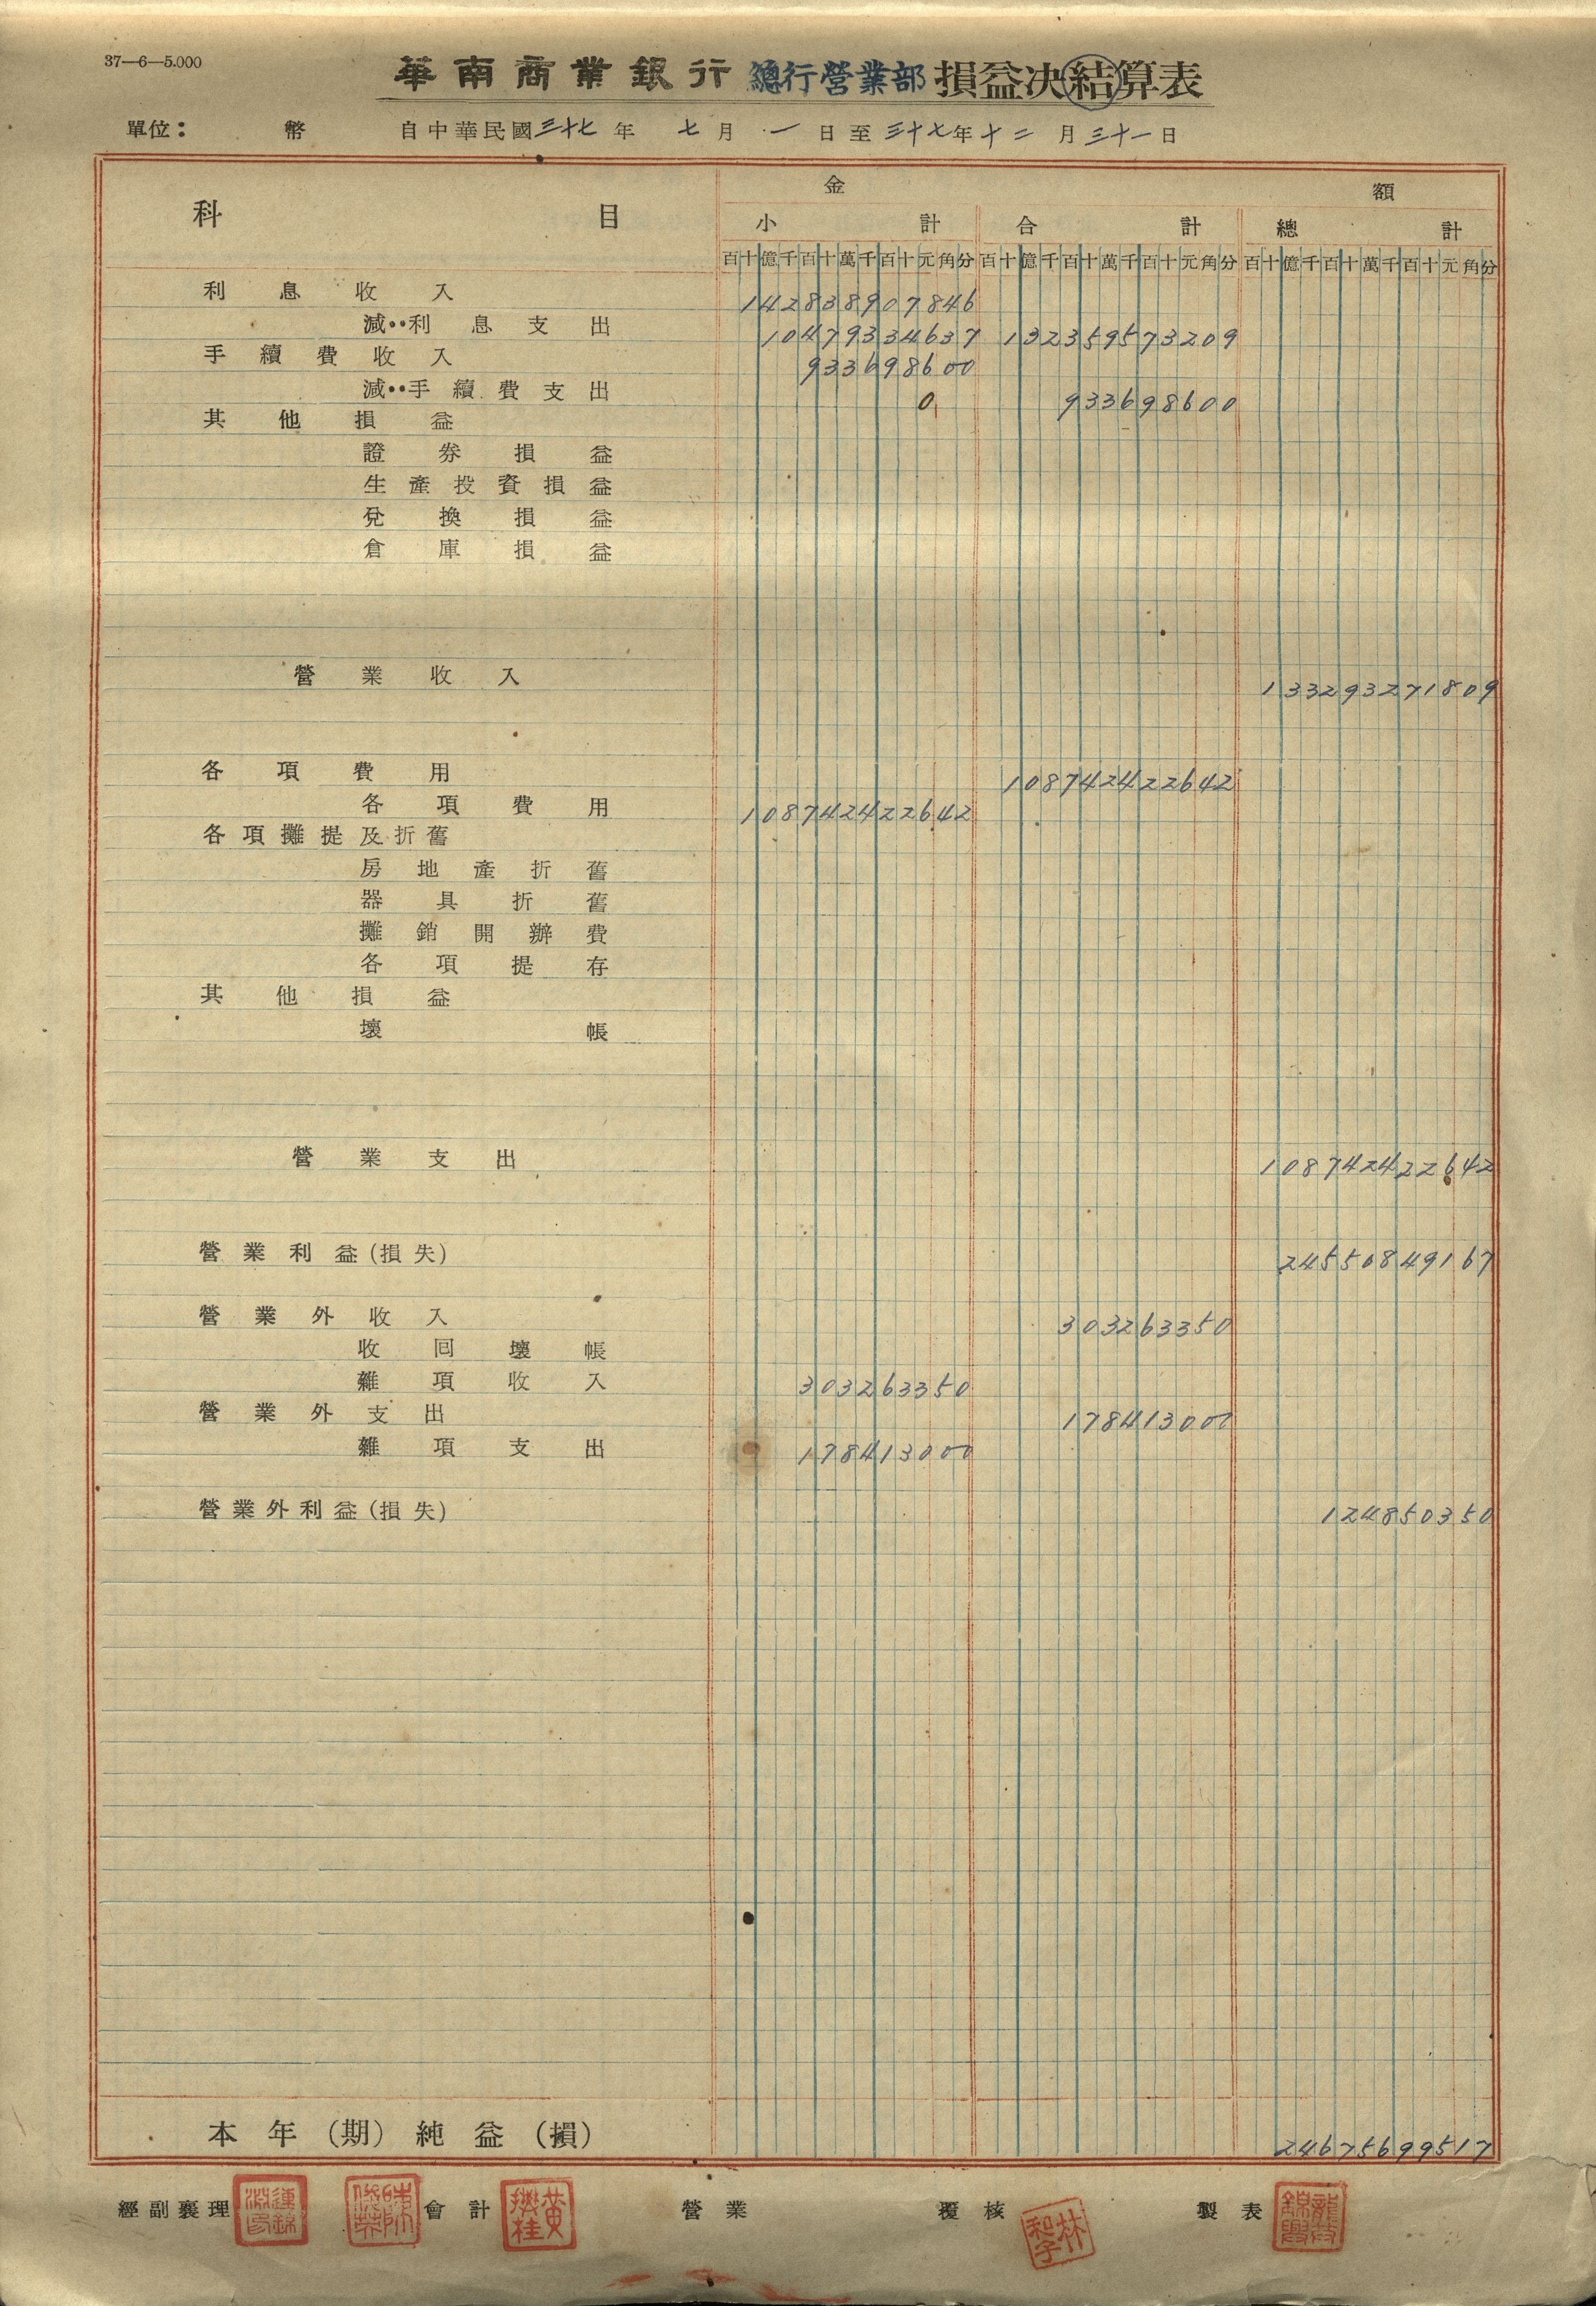 37—6—5.000
華南商業銀行 總行營業部 損益決結算表
單位： 幣 自中華民國三十七年 七月 一日至三十七年十二月三十一日
科 目 金 額
小 計 合 計 總 計
百十億千百十萬千百十元角分 百十億千百十萬千百十元角分 百十億千百十萬千百十元角分
利息收入 142838907846
減：利息支出 10479334637 132359573209
手續費收入 933698600
減：手續費支出 0 933698600
其他損益
證券損益
生產投資損益
兌換損益
倉庫損益
營業收入 133293271809
各項費用 108742422642
各項費用 108742422642
各項攤提及折舊
房地產折舊
器具折舊
攤銷開辦費
各項提存
其他損益
壞帳
營業支出 108742422642
營業利益(損失) 24550849167
營業外收入 303263350
收回壞帳
雜項收入 303263350
營業外支出 178413000
雜項支出 178413000
營業外利益(損失) 124850350
本年（期）純益（損） 24675699517
經副襄理 會計 黃機桂 營業 覆核 林和子 製表